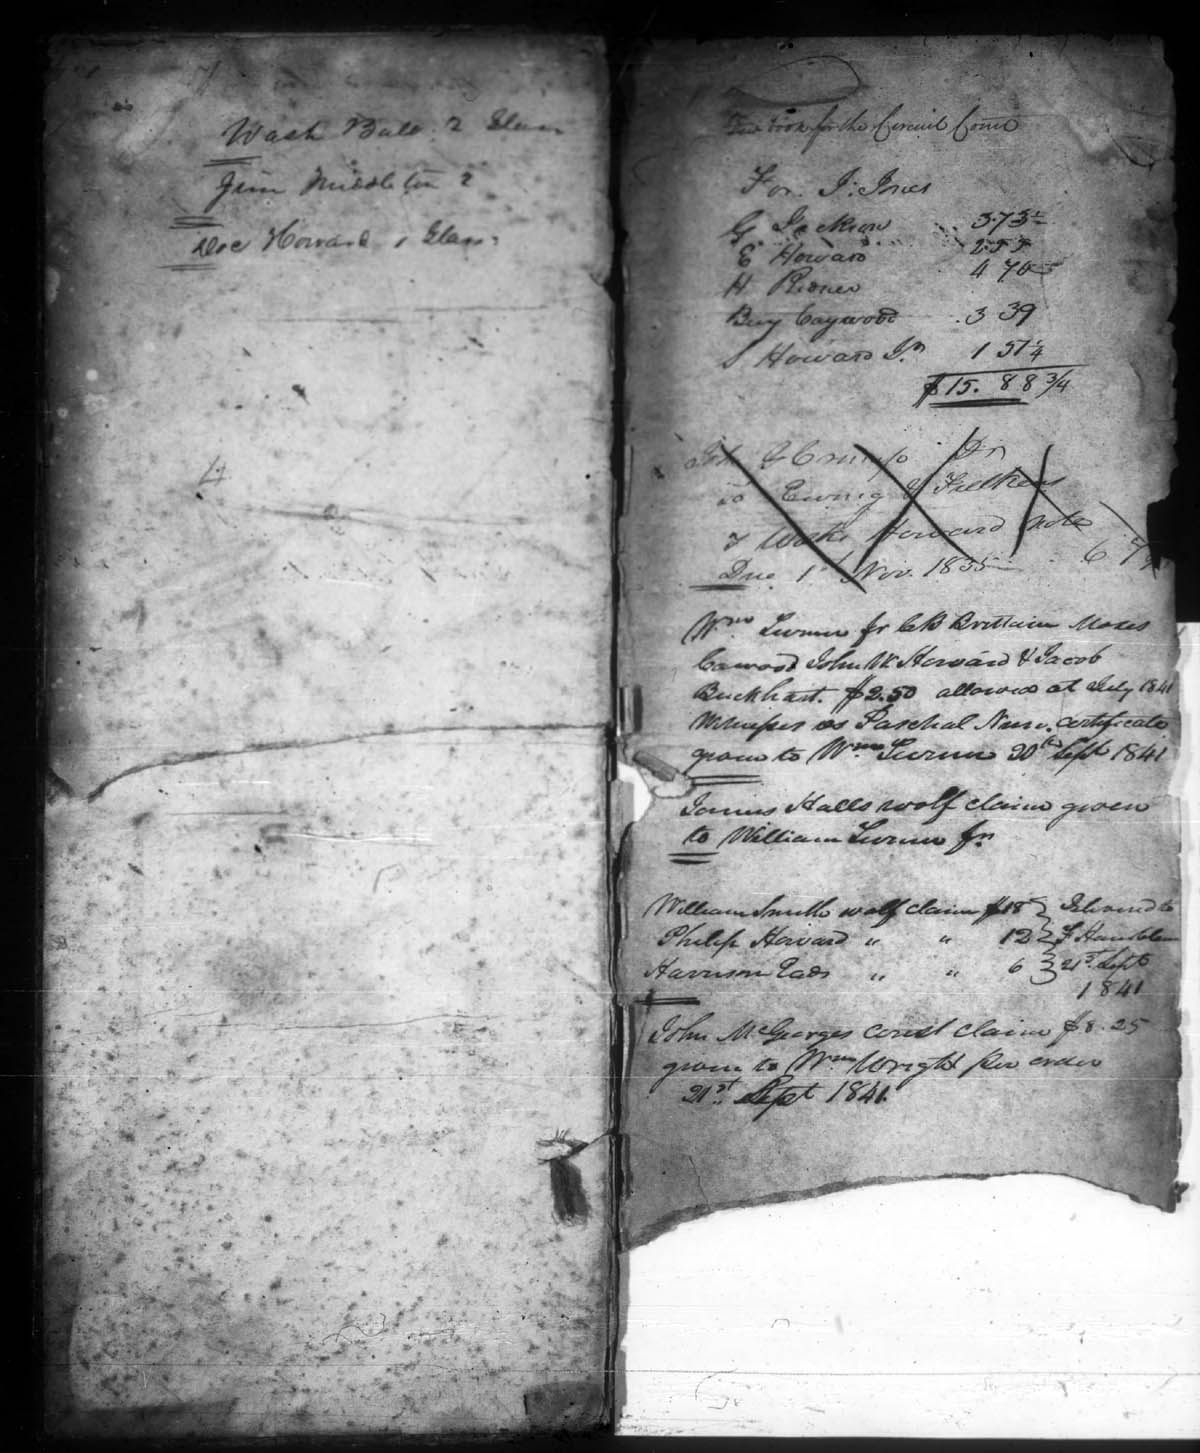 Wash Ball 2 Glass
Jim Middleton 2
Doc Howard 1 Glass
Fee book for the Circuit Court
For J. Ines
G Jackson 3.73
E Howard 2 55
H Ridner 4 70
Benj Caywood 3 39
S Howard Jr 1 51 1/4
$15. 88 3/4
Crump Dr
to Ewing &
Howard note
Due 1st Nov. 1835 6
Wm Turner Jr C B Brittain Moses
Cawood John W Howard & Jacob
Buckhart. $2.50 allowed at July 1841
Witnesses vs Paschal certificate
given to Wm Turner 20th Sept 1841
James Halls wolf claim given
to William Turner Jr
William Smith wolf claim $18 Delivered to
Philip Howard " " 12
Harrison Eads " " 6 21st Sept
1841
John McGeorges court claim $8.25
given to Wm Wright per order
21st Sept 1841.